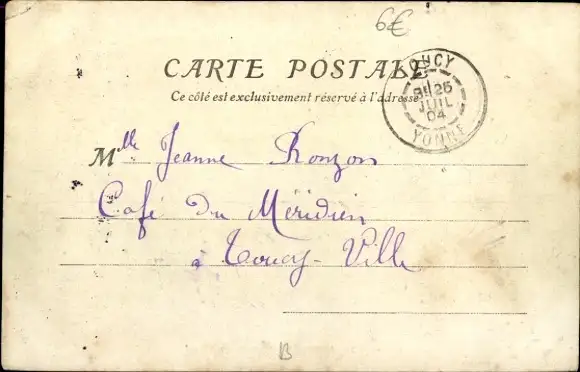 6€
CARTE POSTALE
Ce côté est exclusivement réservé à l'adresse
TOUCY
26
JUIL
04
YONNE
Mlle Jeanne Ronzon
Café du Méridien
à Toucy-Ville
B